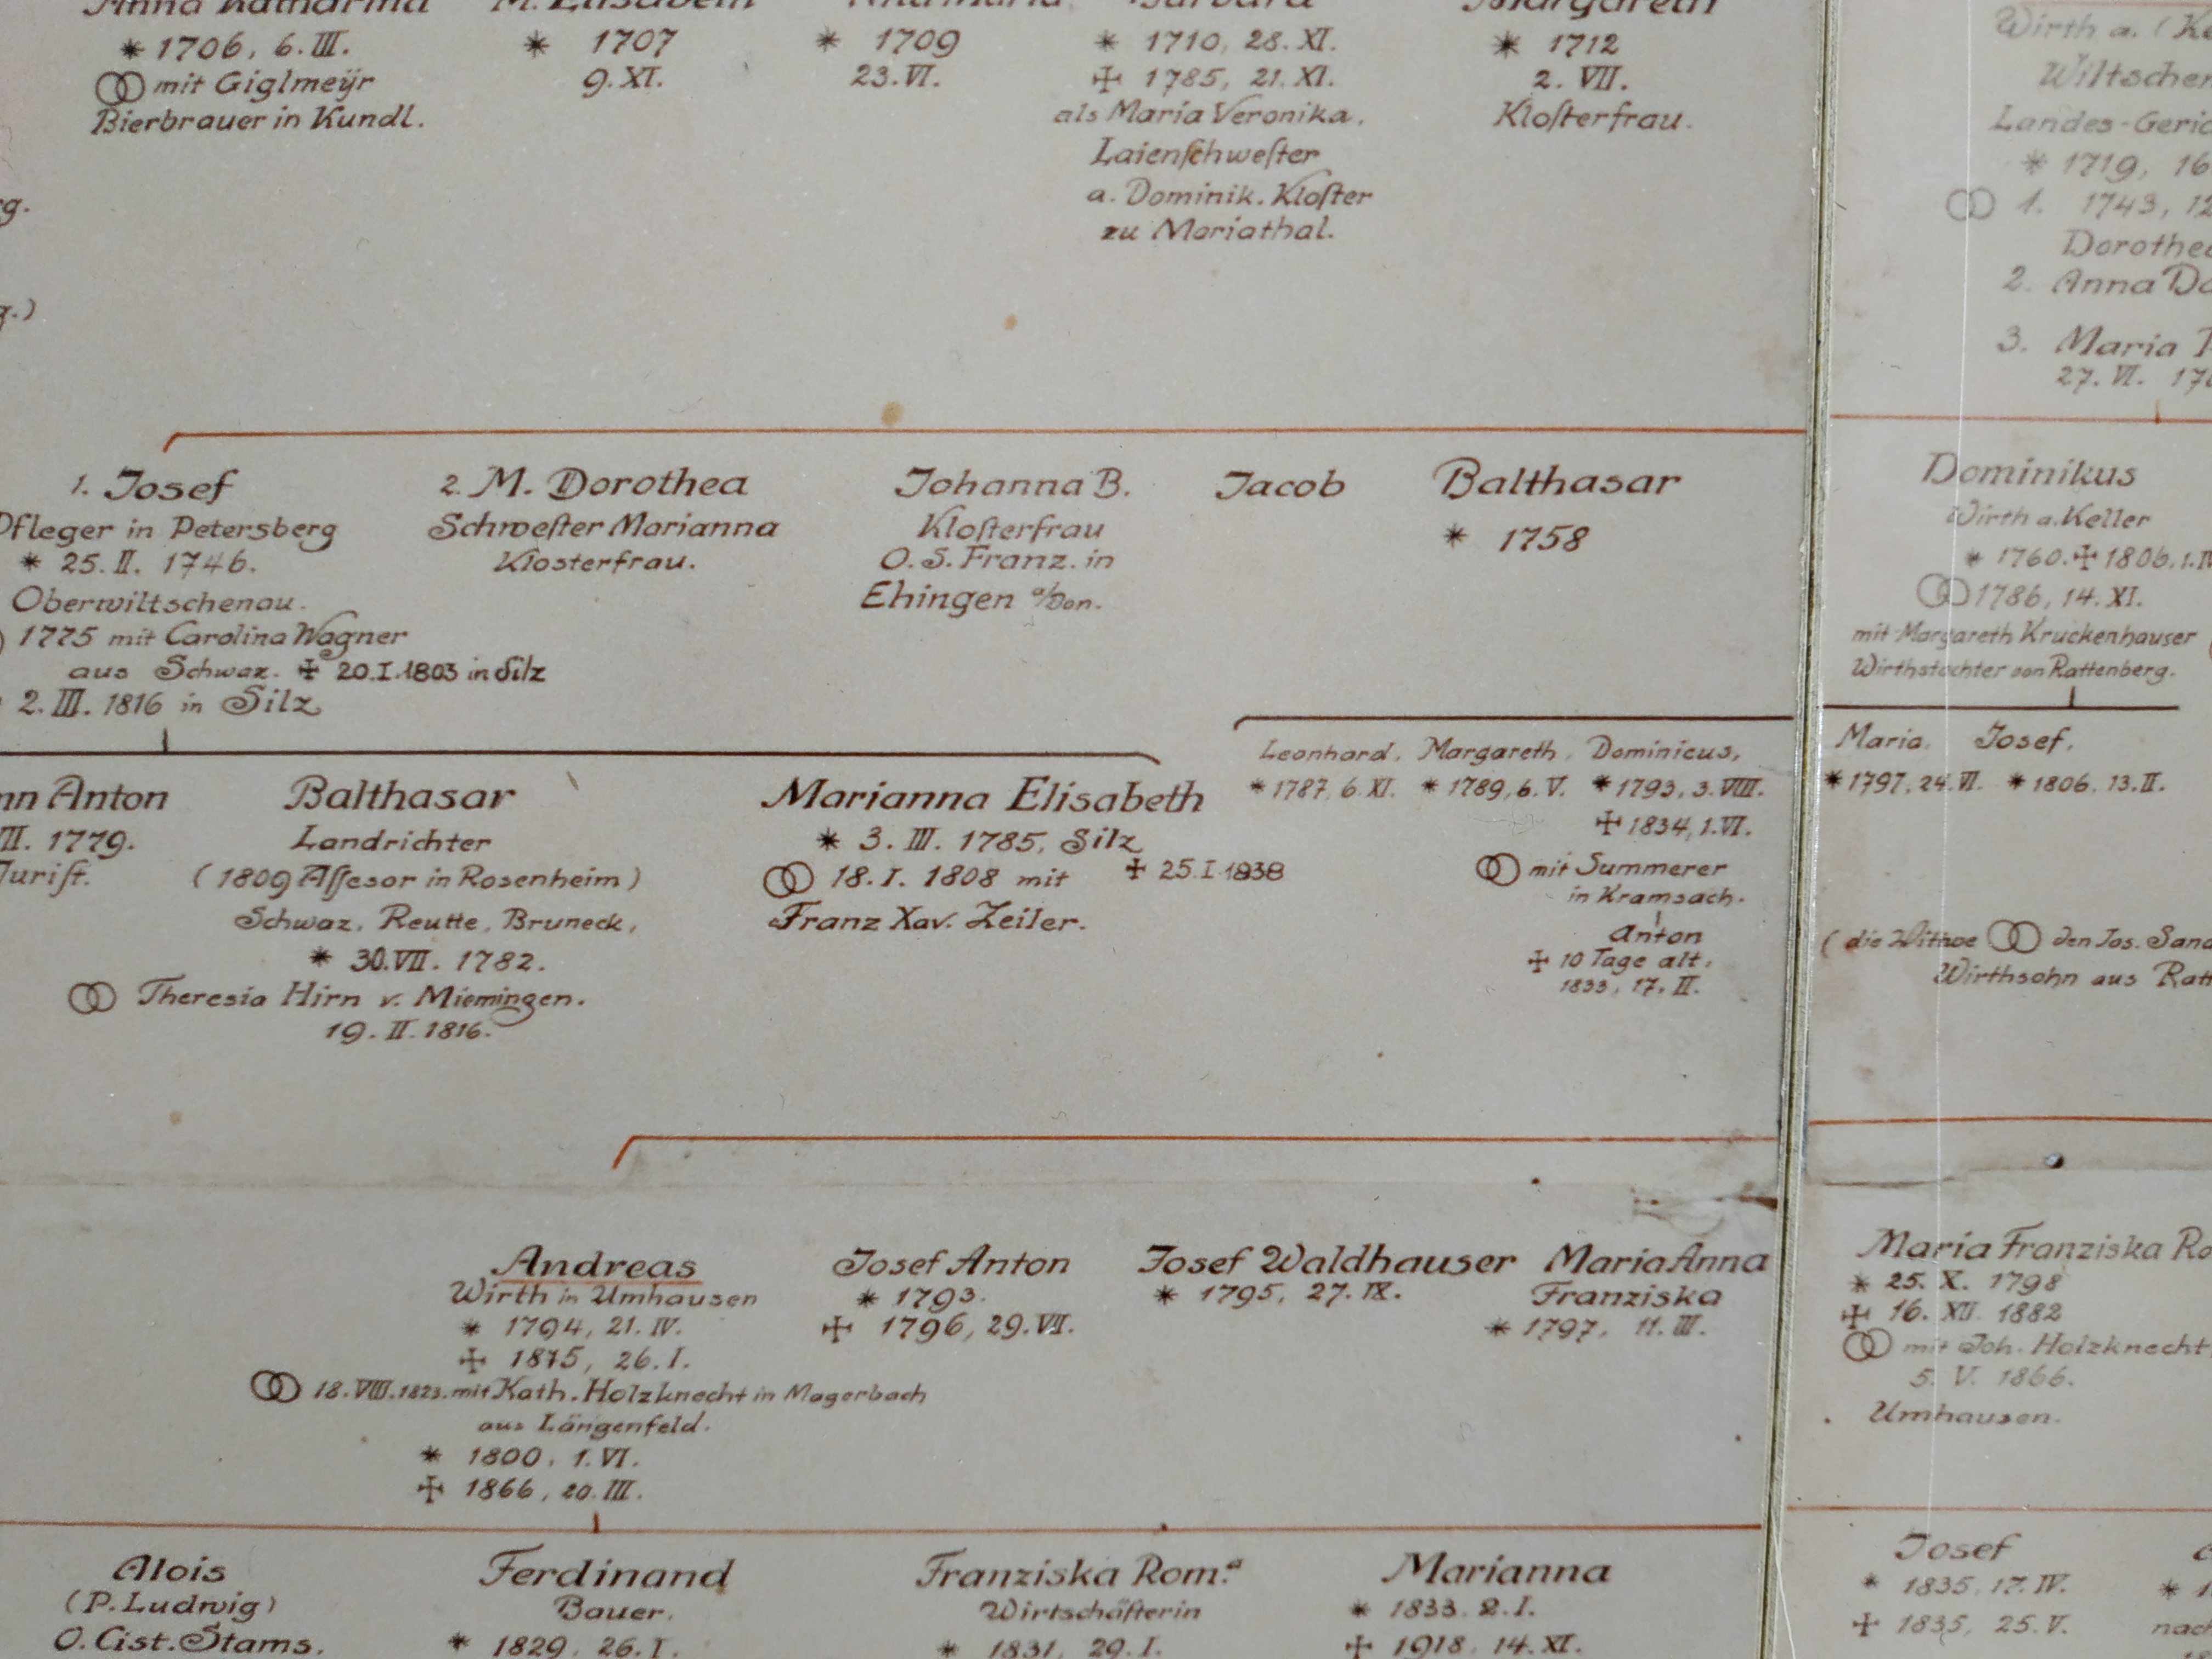 Anna Katharina
* 1706, 6. III.
⚭ mit Giglmeÿr
Bierbrauer in Kundl.
M. Elisabeth
* 1707
9. XI.
* 1709
23. VI.
Barbara
* 1710, 28. XI.
✠ 1785, 21. XI.
als Maria Veronika.
Laienſchweſter
a. Dominik. Kloſter
zu Mariathal.
Margareth
* 1712
2. VII.
Kloſterfrau.
Wirth a. (Ke
Wiltschen
Landes-Geric
* 1719, 16
⚭ 1. 1743, 12
Dorothea
2. Anna Do
3. Maria
27. VI. 17
1. Josef
Pfleger in Petersberg
* 25. II. 1746.
Oberwiltschenau.
1775 mit Carolina Wagner
aus Schwaz. ✠ 20.I.1803 in Silz
2. III. 1816 in Silz
2. M. Dorothea
Schweſter Marianna
Klosterfrau.
Johanna B.
Kloſterfrau
O. S. Franz. in
Ehingen a/Don.
Jacob
Balthasar
* 1758
Dominikus
Wirth a. Keller
* 1760. ✠ 1806, 1. IV
⚭ 1786, 14. XI.
mit Margareth Kruckenhauser
Wirthstochter von Rattenberg.
nn Anton
VII. 1779.
Juriſt.
Balthasar
Landrichter
(1809 Aſſesor in Rosenheim)
Schwaz, Reutte, Bruneck,
* 30.VII. 1782.
⚭ Theresia Hirn v. Miemingen.
19. II. 1816.
Marianna Elisabeth
* 3. III. 1785, Silz
⚭ 18. I. 1808 mit ✠ 25.I.1838
Franz Xav. Zeiler.
Leonhard. Margareth. Dominicus,
* 1787, 6. XI. * 1789, 6. V. * 1793, 3. VIII.
✠ 1834, 1. VI.
⚭ mit Summerer
in Kramsach.
Anton
✠ 10 Tage alt.
1833, 17. II.
Maria. Josef.
* 1797, 24. VI. * 1806. 13. II.
(die Withwe ⚭ den Jos. Sand
Wirthsohn aus Ratt
Andreas
Wirth in Umhausen
* 1794, 21. IV.
✠ 1875, 26. I.
⚭ 18.VIII.1823. mit Kath. Holzknecht in Magerbach
aus Längenfeld.
* 1800, 1. VI.
✠ 1866, 20. III.
Josef Anton
* 1793.
✠ 1796, 29. VII.
Josef Waldhauser
* 1795, 27. IX.
Maria Anna
Franziska
* 1797, 11. III.
Maria Franziska Ro
* 25. X. 1798
✠ 16. XII. 1882
⚭ mit Joh. Holzknecht,
5. V. 1866.
Umhausen.
Alois
(P. Ludwig)
O. Cist. Stams.
Ferdinand
Bauer.
* 1829, 26. I.
Franziska Rom.ª
Wirtschäfterin
* 1831, 29. I.
Marianna
* 1833. 2. I.
✠ 1918. 14. XI.
Josef
* 1835, 17. IV.
✠ 1835, 25. V.
nach